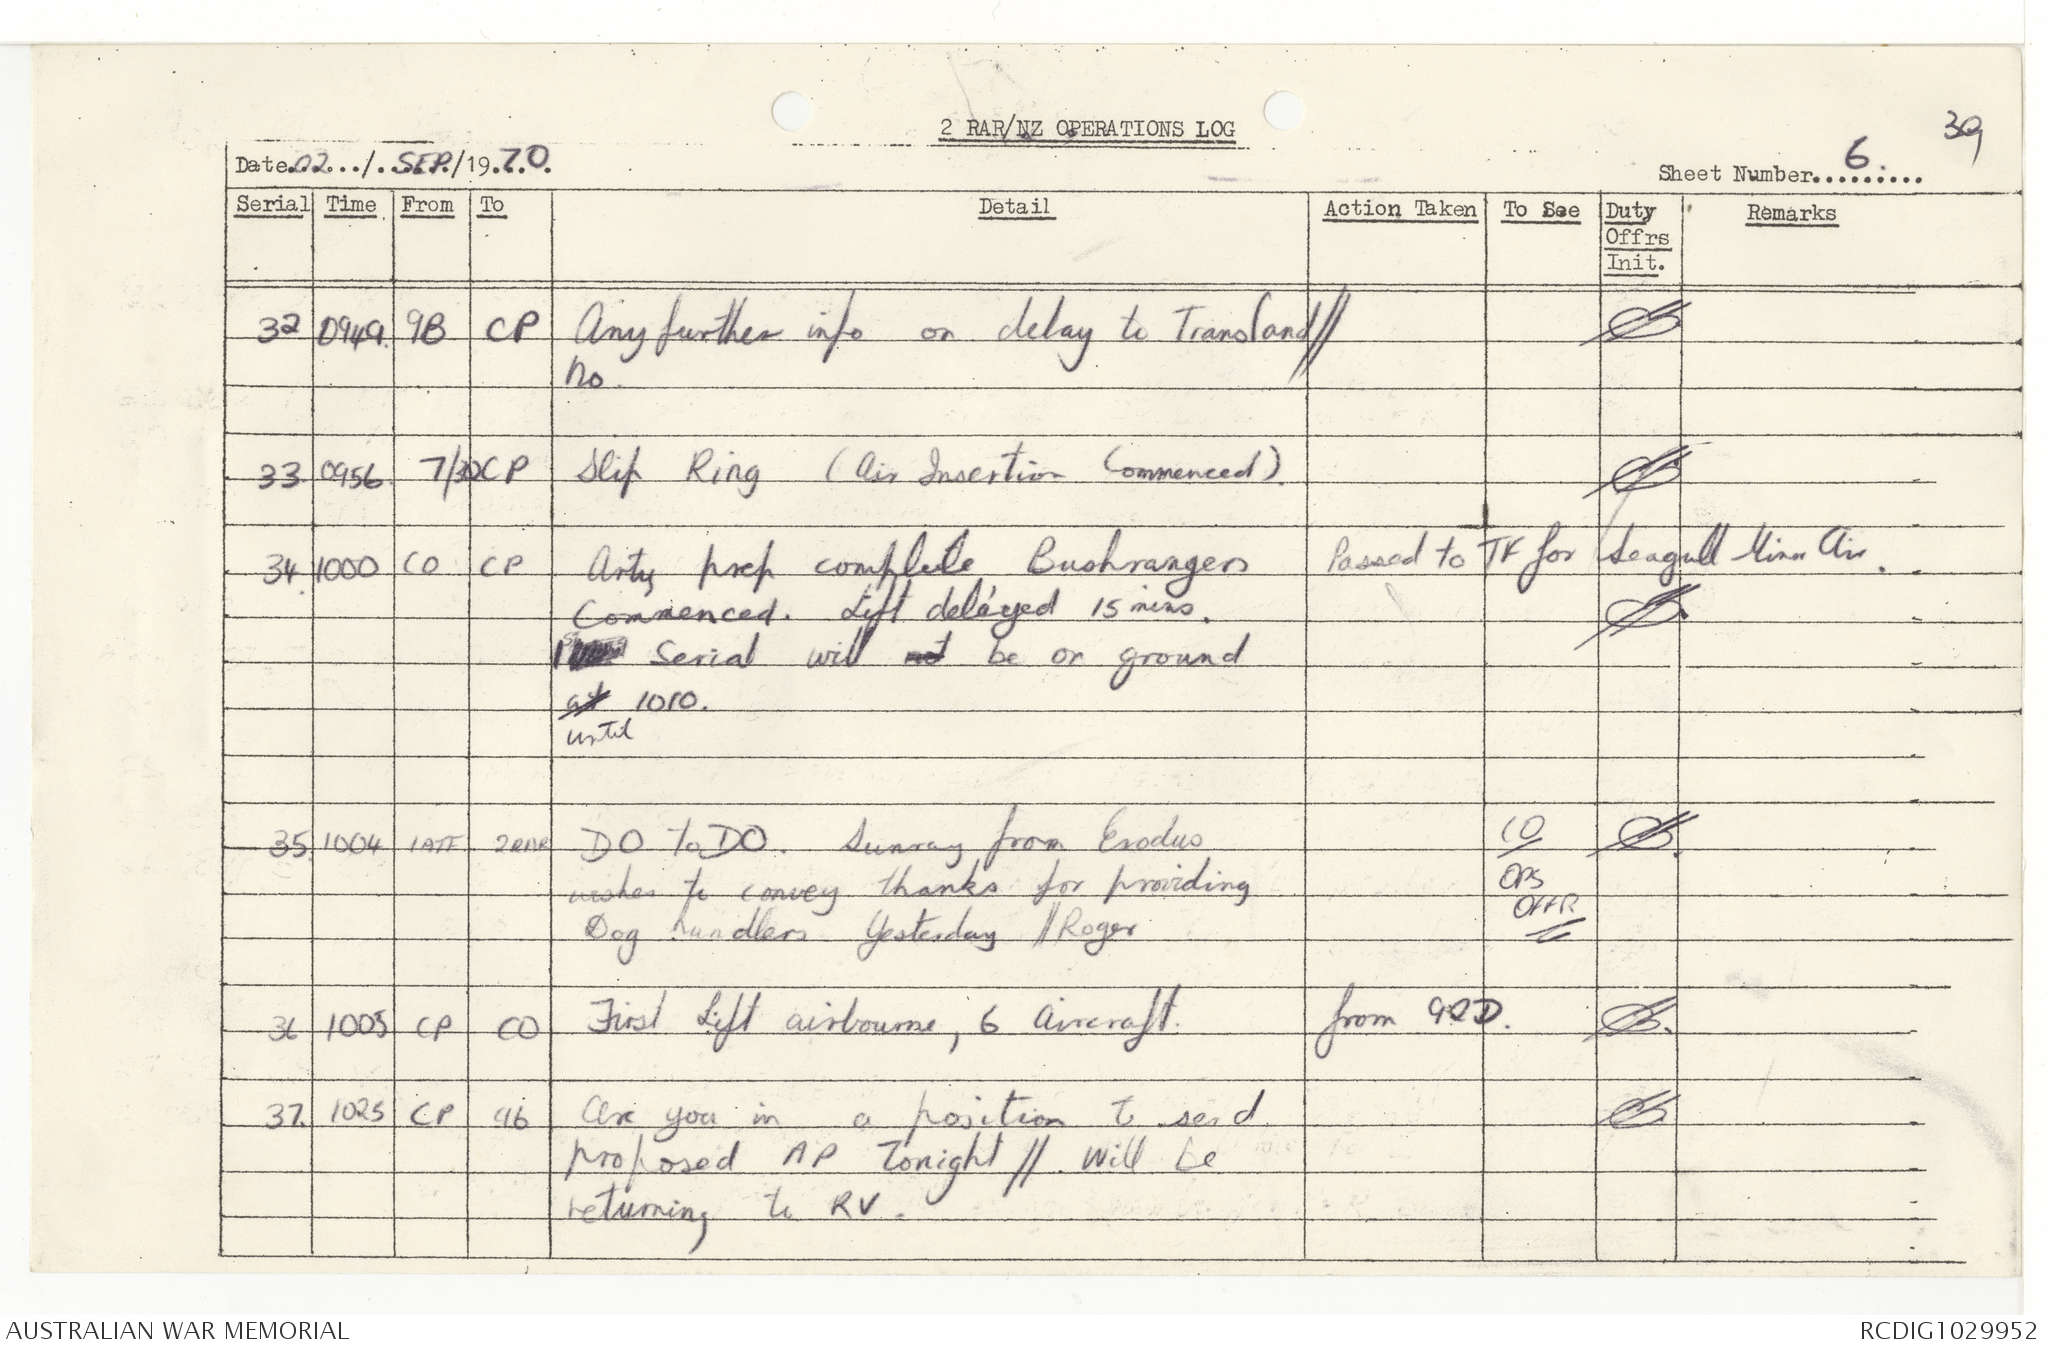 39
2 RAR/NZ OPERATIONS LOG
Date 02 / SEP / 1970. Sheet Number 6
Serial Time From To Detail Action Taken To See Duty Offrs Init. Remarks
32 0949 9B CP Any further info on delay to Transland//
No.
33 0956 7/30 CP Slip Ring (Air Insertion Commenced).
34 1000 CO CP Arty prep complete Bushrangers Passed to TF for Seagull Air.
Commenced. Lift delayed 15 mins.
Serial will not be on ground
at 1010.
until
35 1004 1ATF 2RAR DO to DO. Sunray from Exodus CO
wishes to convey thanks for providing OPS
Dog handlers Yesterday //Roger OFFR
36 1005 CP CO First Lift airbourne, 6 Aircraft. from 92D.
37 1025 CP 96 Are you in a position to send
proposed AP Tonight //. Will be
returning to RV.
AUSTRALIAN WAR MEMORIAL RCDIG1029952